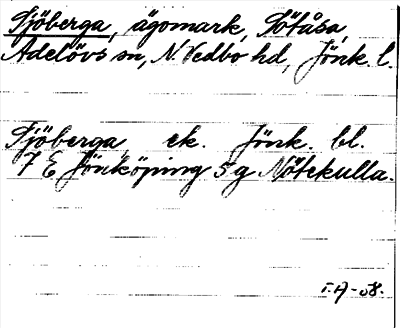 Sjöberga, ägomark, Sötåsa,
Adelövs sn, N. Vedbo hd, Jönk. l.
Sjöberga ek. Jönk. bl.
7 E Jönköping 5 g Nötekulla.
I.A-58.